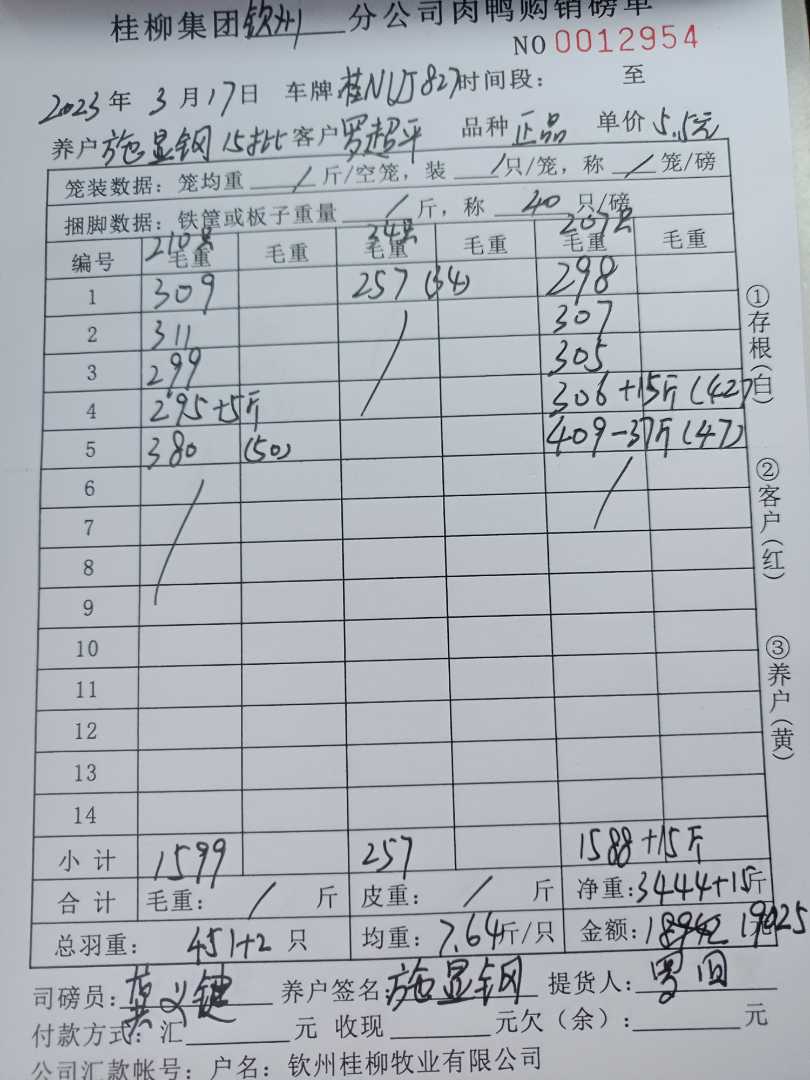 桂柳集团钦州分公司肉鸭购销磅单
NO 0012954
2023年 3月17日 车牌桂NUJ827时间段： 至
养户施显钢15批客户罗超平 品种正品 单价5.5元
笼装数据：笼均重 / 斤/空笼，装 / 只/笼，称 / 笼/磅
捆脚数据：铁筐或板子重量 / 斤，称 40 只/磅
210只 34只 207只
编号 毛重 毛重 毛重 毛重 毛重 毛重
1 309 257 (34) 298
2 311 / 307
3 299 305
4 295+5斤 306+15斤(42)
5 380 (50) 409-37斤(47)
6 / /
7
8
9
10
11
12
13
14
小计 1599 257 1588+15斤
合计 毛重： / 斤 皮重： / 斤 净重：3444+15斤
总羽重： 451+2 只 均重：7.64斤/只 金额：18942 19025
司磅员：黄义键 养户签名施显钢 提货人：罗
付款方式：汇 元 收现 元欠（余）： 元
公司汇款帐号：户名：钦州桂柳牧业有限公司
①存根（白）
②客户（红）
③养户（黄）